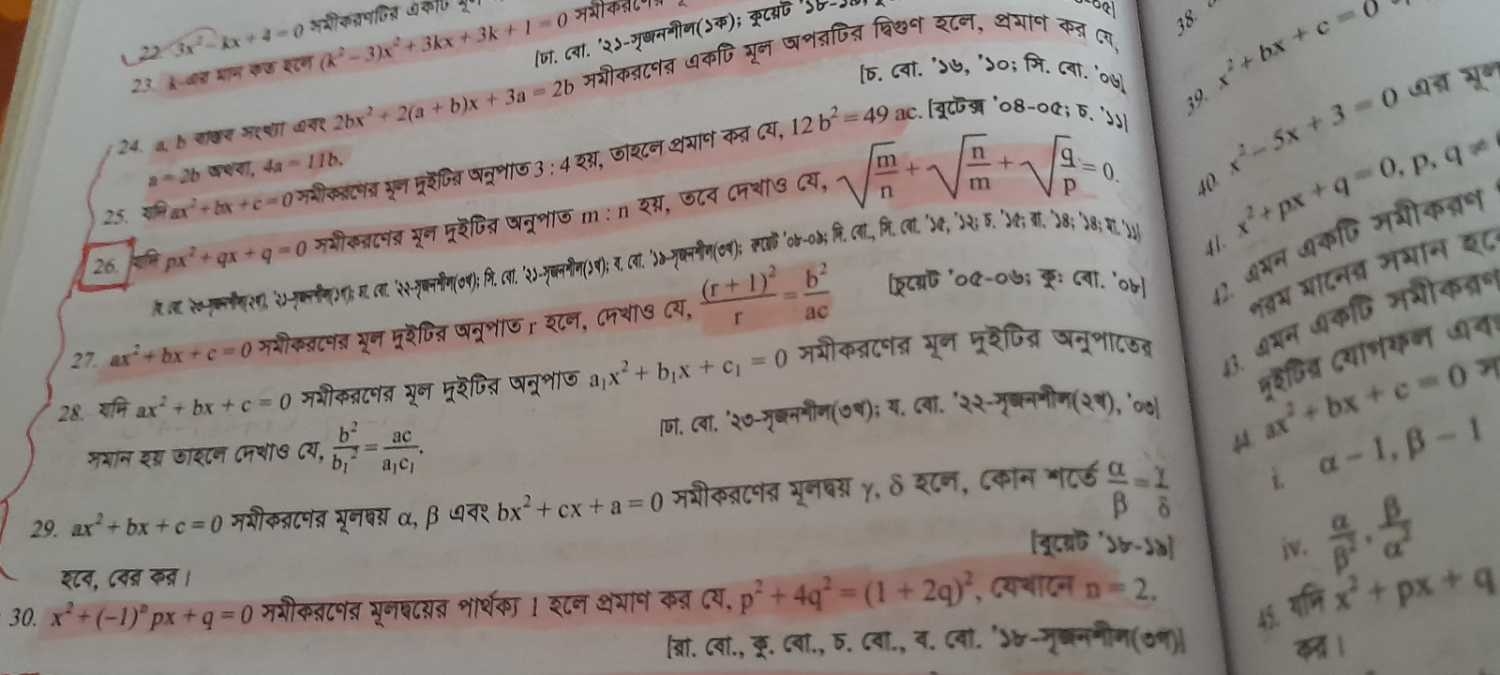 22. 3x² − kx + 4 = 0 সমীকরণটির একটি
23. k-এর মান কত হলে (k² − 3)x² + 3kx + 3k + 1 = 0
[ঢা. বো. '২১-সৃজনশীল(১ক); কুয়েট '১৮-১৯;
24. a, b বাস্তব সংখ্যা এবং 2bx² + 2(a + b)x + 3a = 2b সমীকরণের একটি মূল অপরটির দ্বিগুণ হলে, প্রমাণ কর যে,
a = 2b অথবা, 4a = 11b.
[চ. বো. '১৬, '১০; সি. বো. '০৬]
25. যদি ax² + bx + c = 0 সমীকরণের মূল দুইটির অনুপাত 3 : 4 হয়, তাহলে প্রমাণ কর যে, 12 b² = 49 ac. [বুটেক্স '০৪-০৫; চ. '১১]
26. যদি px² + qx + q = 0 সমীকরণের মূল দুইটির অনুপাত m : n হয়, তবে দেখাও যে, √(m/n) + √(n/m) + √(q/p) = 0.
27. ax² + bx + c = 0 সমীকরণের মূল দুইটির অনুপাত r হলে, দেখাও যে, (r + 1)²/r = b²/ac
[কুয়েট '০৫-০৬; কু: বো. '০৮]
28. যদি ax² + bx + c = 0 সমীকরণের মূল দুইটির অনুপাত a₁x² + b₁x + c₁ = 0 সমীকরণের মূল দুইটির অনুপাতের
সমান হয় তাহলে দেখাও যে, b²/b₁² = ac/a₁c₁.
[ঢা. বো. '২৩-সৃজনশীল(৩খ); য. বো. '২২-সৃজনশীল(২খ), '০৩]
29. ax² + bx + c = 0 সমীকরণের মূলদ্বয় α, β এবং bx² + cx + a = 0 সমীকরণের মূলদ্বয় γ, δ হলে, কোন শর্তে α/β = γ/δ
হবে, বের কর।
[বুয়েট '১৮-১৯]
30. x² + (−1)ⁿ px + q = 0 সমীকরণের মূলদ্বয়ের পার্থক্য 1 হলে প্রমাণ কর যে, p² + 4q² = (1 + 2q)², যেখানে n = 2.
[রা. বো., কু. বো., চ. বো., ব. বো. '১৮-সৃজনশীল(৩খ)]
38.
39. x² + bx + c = 0
40. x² − 5x + 3 = 0 এর মূল
41. x² + px + q = 0, p, q ≠
42. এমন একটি সমীকরণ
পরম মানের সমান হবে
43. এমন একটি সমীকরণ
দুইটির যোগফল এবং
44 ax² + bx + c = 0
i. α − 1, β − 1
iv. α/β², β/α²
45. যদি x² + px + q
কর।